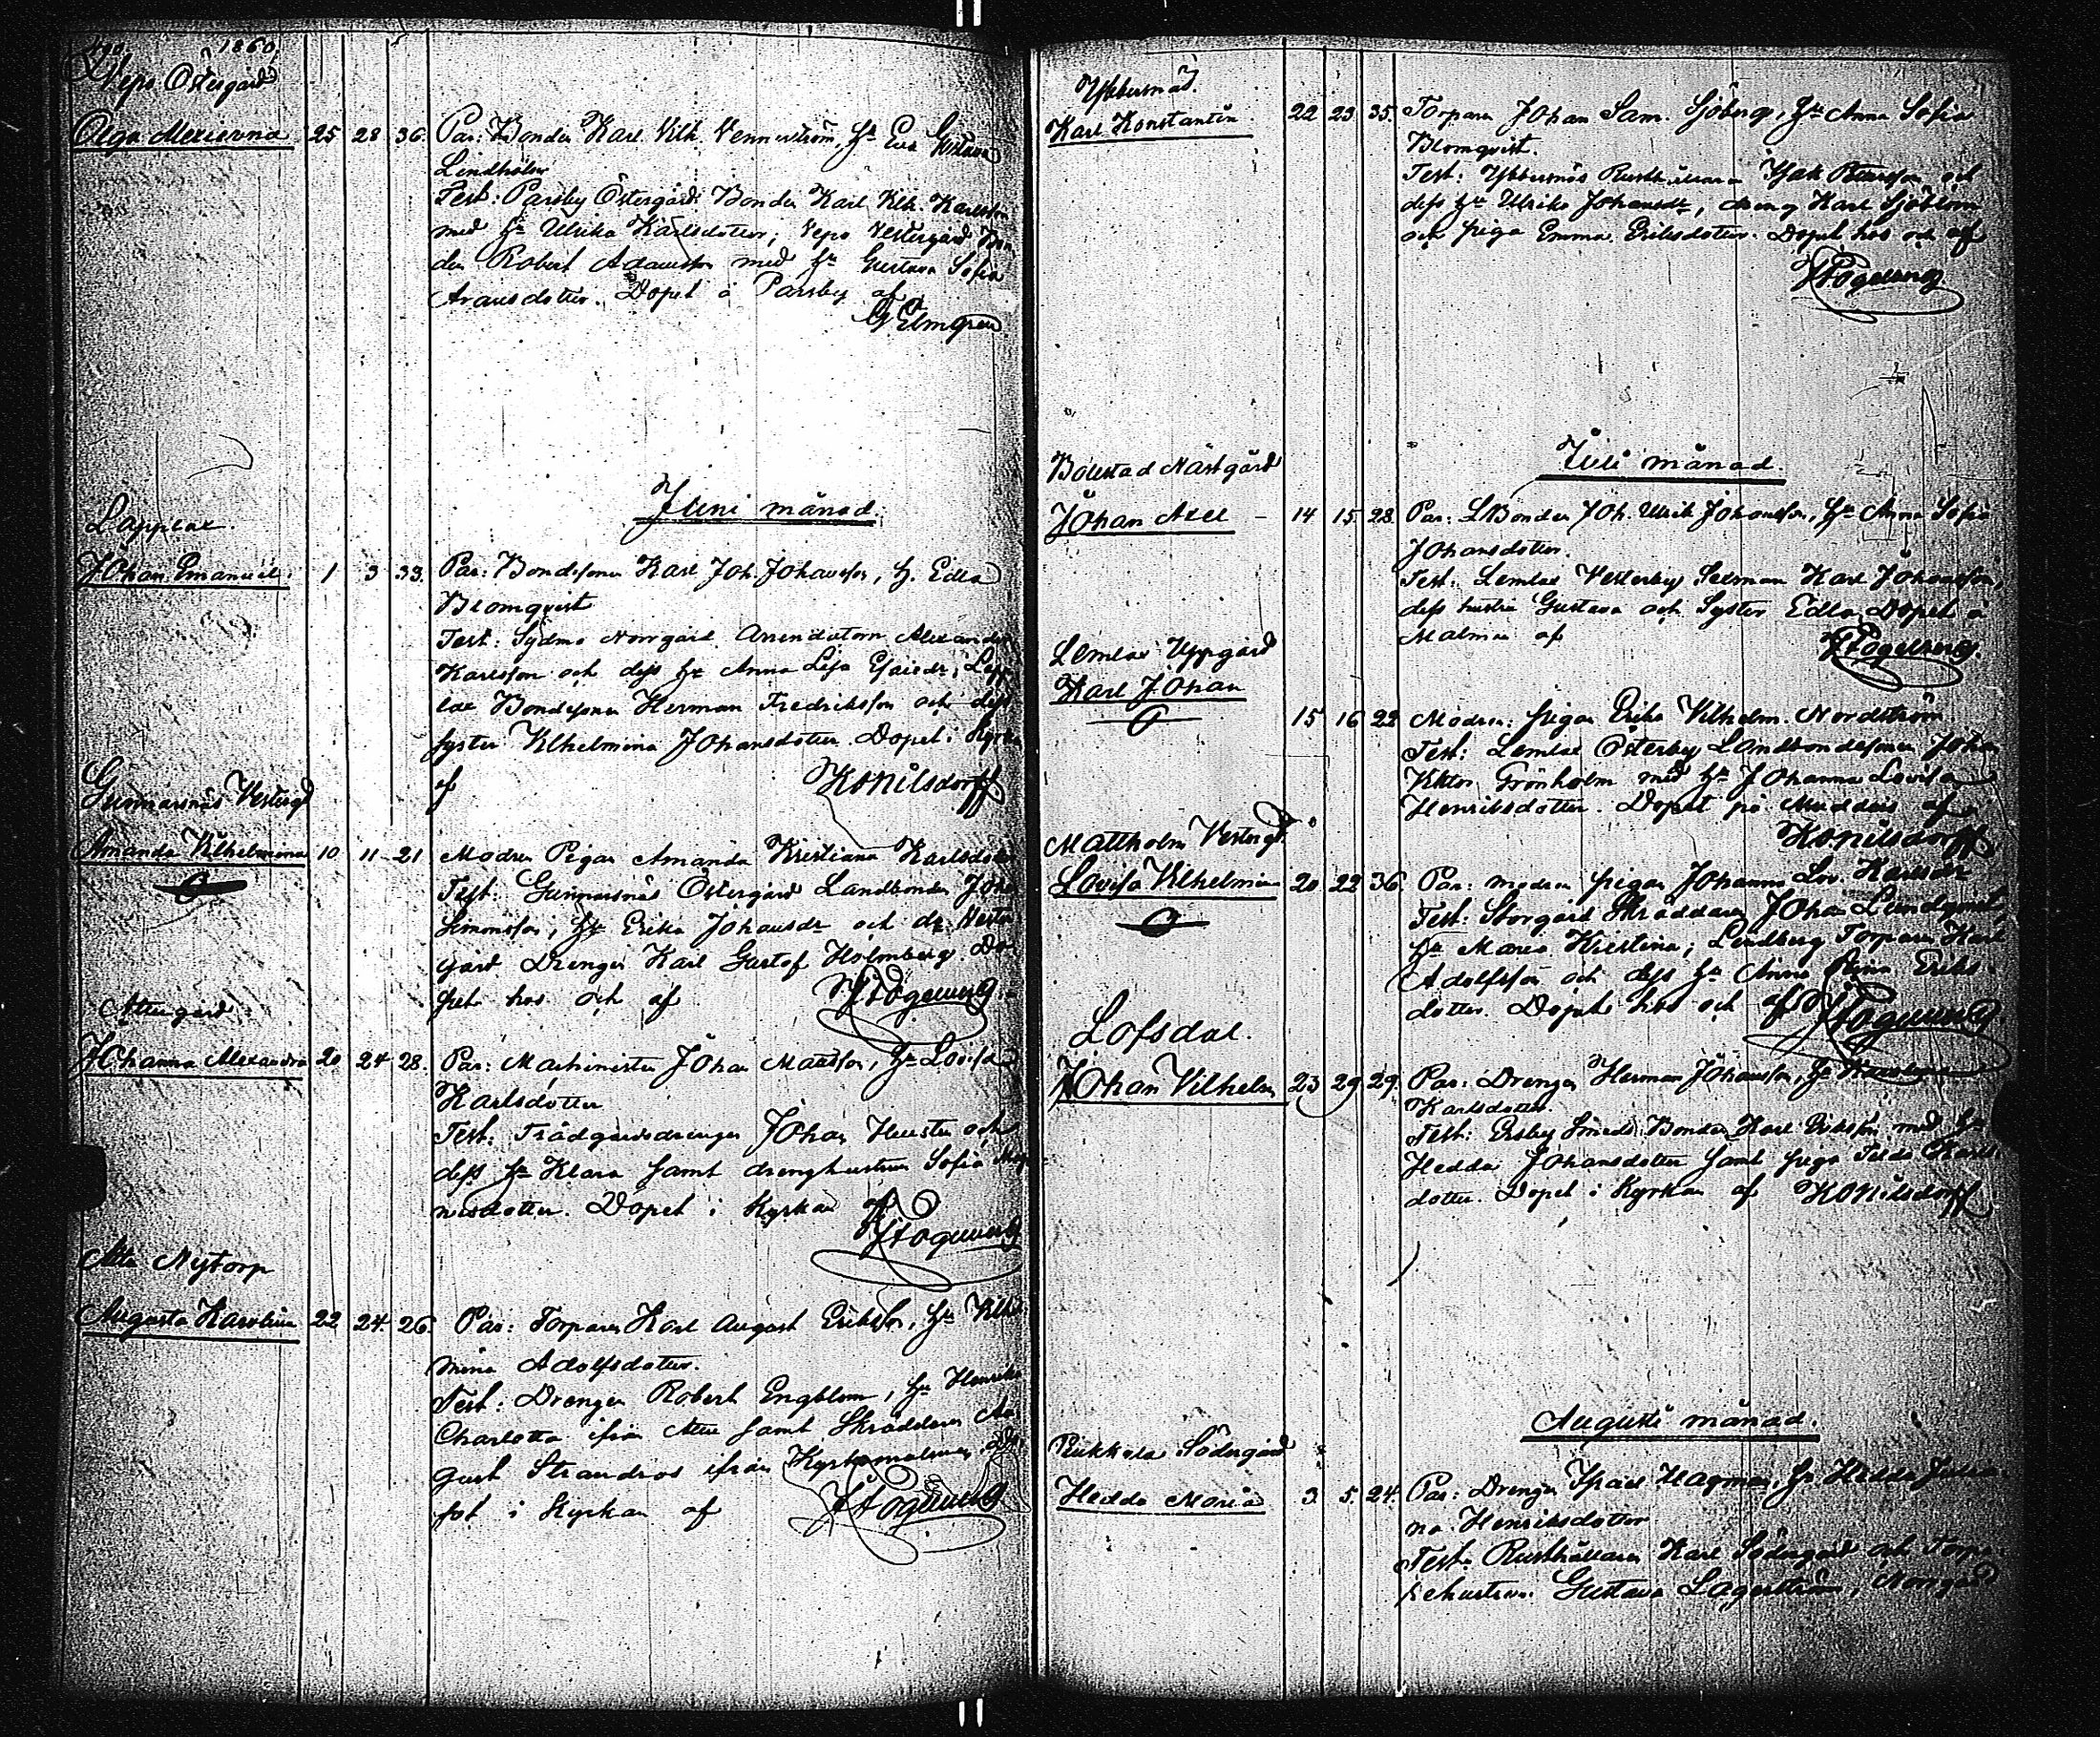 1860.
Vepo Östergård
Olga Alexievna 25 28 36. Par: Bonden Karl Vilh. Vennerström, Hu Eva Gustava
Lindholm
Test: Parsby Östergård Bonden Karl Vilh. Karlsson
med Hu Ulrika Karlsdotter; Vepo Vestergård Bon
den Robert Adamsson med Hu Gustava Sofia
dotter. Döpet å Parsby af
G Elmgren
Juni månad.
Lapplax.
Johan Emanuel. 1 3 33. Par: Bondesonen Karl Joh. Johansson, H. Edla
Blomqvist
Test: Sydmo Norrgård Arrendatorn Alexander
Karlsson och dess Hu Anna Lisa Esaiedr, Lapp
lax Bondesonen Herman Fredriksson och dess
syster Vilhelmina Johansdotter. Döpet i Kyrkan
af KONilsdorff
Gunnarsnäs Vestergd
Amanda Vilhelmina 10 11 21 Modren Pigan Amanda Kristiana Karlsdotter
Test: Gunnarsnäs Östergård Landbonden Joha
Simonsson, Hu Erika Johansdr och dr Vester
gård Drengen Karl Gustaf Holmberg Dö
pet hos och af
Attergård
Johanna Alexandra 20 24 28. Par: Machinisten Johan Mattsson, Hu Lovisa
Karlsdotter
Test: Trädgårdsdrengen Johan och
dess Hu Klara samt drenghustrun Sofia
nusdotter. Döpet i Kyrkan af
Atta Nytorp
Augusta Karolina 22 24. 26. Par: Torparen Karl August Eriksson, Hu Vilhel
mina Adolfsdotter.
Test: Drengen Robert Engblom, Hu Henrika
Charlotta ifrån Attu samt Skräddaren Au
gust Strandros ifrån Kyrkomalmen Dö
pet i Kyrkan af
Ybbersnäs.
Karl Konstantin 22 23 35. Torparen Johan Sam. Sjöberg, Hu Anna Sofia
Blomqvist.
Test: Ybbersnäs Rusthållaren Isak Petersson och
dess Hu Ulrika Johansdr, dreng Karl Sjöblom
och piga Emma Eriksdotter. Döpet hos och af
Juli månad.
Bollstad Nästgård
Johan Axel - 14 15 28. Par: LBonden Joh. Ulrik Johansson, Hu Anna Sofia
Johansdotter.
Test: Lemlax Vesterby Johansson,
dess hustru Gustava och Syster Edla Döpet å
Malmen af
Lemlax Uppgård
Karl Johan
15 16 22 Modren: pigan Erika Vilhelm. Nordström
Test: Lemlax Österby Landbondesonen Johan
Viktor Grönholm med Hu Johanna Lovisa
Henriksdotter. Döpet på af
KONilsdorff
Mattholm Vestergd.
Lovisa Vilhelmina 20 22 36. Par: modren pigan Johanna Lov. Karlsdr
Test: Storgård Skräddaren Johan Lindqvist,
Hu Maria Kristina; Lindberg Torparen Karl
Adolfsson och dess Hu Anna Stina Eriks
dotter. Döpet hos och af
Lofsdal.
Johan Vilhelm 23 29 29. Par: Drengen Herman Johansson, Hu
Karlsdotter.
Test: Ersby Smeds Bonden Karl Eriksson med Hu
Hedda Johansdotter samt piga Karls
dotter. Döpet i Kyrkan af KONilsdorff
Augusti månad.
Södergård
Hedda Maria 3. 5. 24. Par: Drengen Isael Hagman, Hu Hedda Julia
na Henriksdotter
Test: Rusthållaren Karl Södergård och Torpa
rehustrun Gustava Lagerström, Norrgård